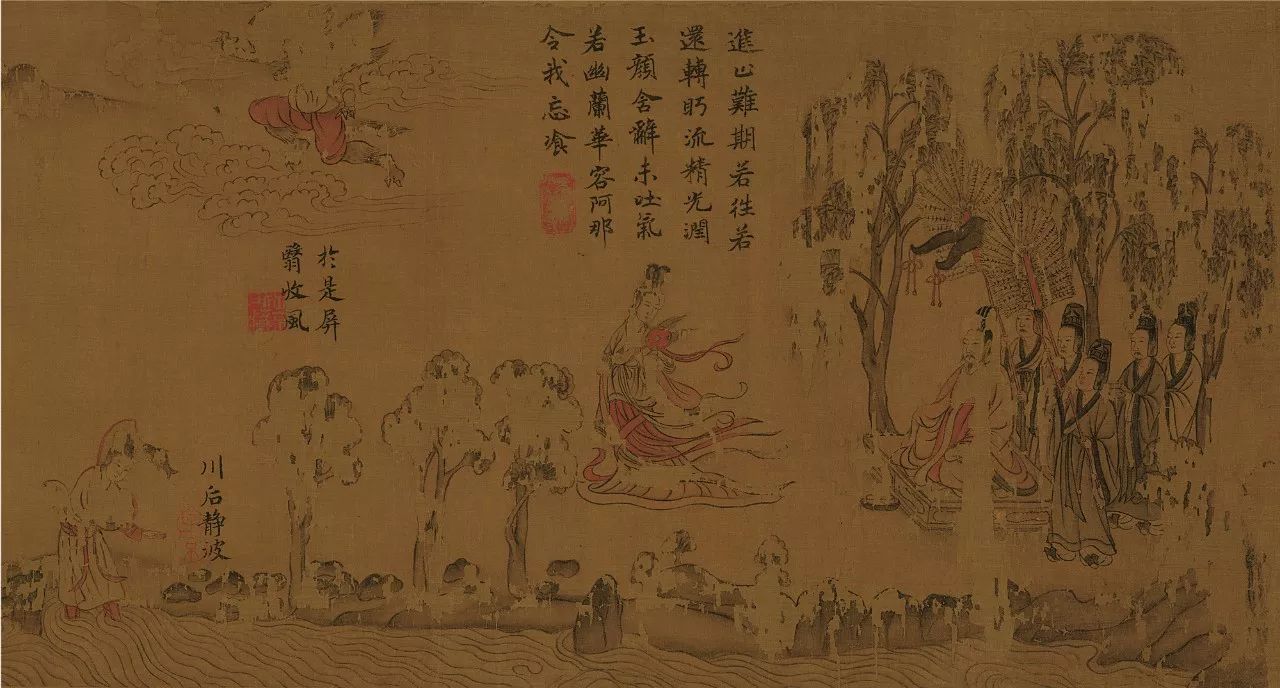 進止難期若徃若
還轉眄流精光潤
玉顏含辭未吐氣
若幽蘭華容阿那
令我忘飡
於是屏
翳收風
川后静波